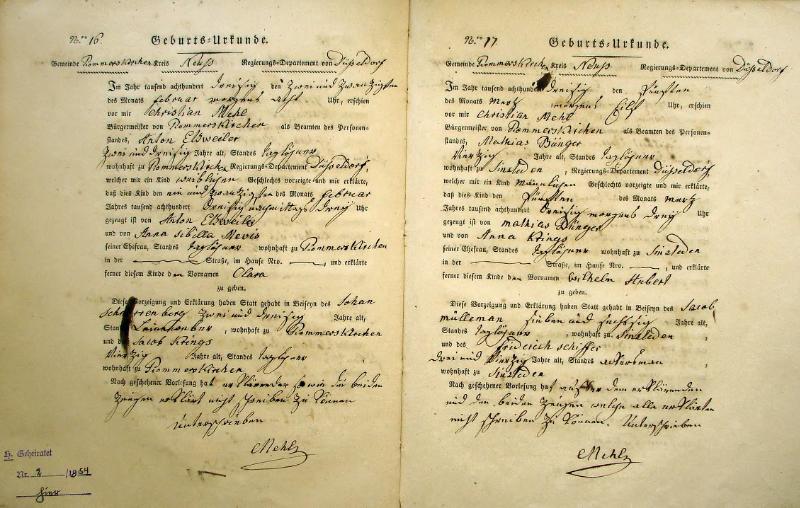 No. 16 Geburts-Urkunde.
Gemeinde Rommerskirchen Kreis Neuß Regierungs-Departement von Düsseldorf
Im Jahr tausend achthundert dreisig den zwei und zwanzigsten
des Monats februar morgens acht Uhr, erschien
vor mir Christian Mehl
Bürgermeister von Rommerskirchen als Beamten des Personen-
standes, Anton Eldweiler
zwei und dreisig Jahre alt, Standes taglöhner
wohnhaft zu Rommerskirchen Regierungs-Departement Düsseldorf,
welcher mir ein Kind weiblichen Geschlechts vorzeigte und mir erklärte,
daß dies Kind den ein und zwanzigsten des Monats februar
Jahres tausend achthundert dreisig nachmittags drey Uhr
gezeugt ist von Anton Eldweiler
und von Anna Sibilla Mevis
seiner Ehefrau, Standes taglöhner wohnhaft zu Rommerskirchen
in der Straße, im Hause Nro. , und erklärte
ferner diesem Kinde den Vornamen Clara
zu geben.
Diese Vorzeigung und Erklärung haben Statt gehabt in Beiseyn des Johan
zwei und dreisig Jahre alt,
Standes , wohnhaft zu Rommerskirchen
und des Jacob Krings
vierzig Jahre alt, Standes taglöhner
wohnhaft zu Rommerskirchen
Nach geschehener Vorlesung hat erklärender sowie die beiden
Zeugen erklärt nicht schreiben zu können
Unterschrieben
Mehl
H. Geheiratet
Nr. 2 / 1854
hier
No. 17 Geburts-Urkunde.
Gemeinde Rommerskirchen Kreis Neuß Regierungs-Departement von Düsseldorf
Im Jahr tausend achthundert dreisig den fünften
des Monats Merz morgens eilf Uhr, erschien
vor mir Christian Mehl
Bürgermeister von Rommerskirchen als Beamten des Personen-
standes, Mathias Bünger
vierzig Jahre alt, Standes taglöhner
wohnhaft zu Sinsteden, Regierungs-Departement Düsseldorf
welcher mir ein Kind Männlichen Geschlechts vorzeigte und mir erklärte,
daß dies Kind den fünften des Monats Merz
Jahres tausend achthundert dreisig morgens drey Uhr
gezeugt ist von Mathias Bünger
und von Anna Krings
seiner Ehefrau, Standes taglöhner wohnhaft zu Sinsteden
in der Straße, im Hause Nro. , und erklärte
ferner diesem Kinde den Vornamen Wilhelm Hubert
zu geben.
Diese Vorzeigung und Erklärung haben Statt gehabt in Beiseyn des Jacob
Mülleman sieben und sechszig Jahre alt,
Standes taglöhner, wohnhaft zu Sinsteden,
und des Friderich Schiffer
drei und vierzig Jahre alt, Standes Ackersman
wohnhaft zu Sinsteden
Nach geschehener Vorlesung hat außer dem erklärenden
und den beiden Zeugen welche alle erklärten
nicht schreiben zu können. Unterschrieben
Mehl